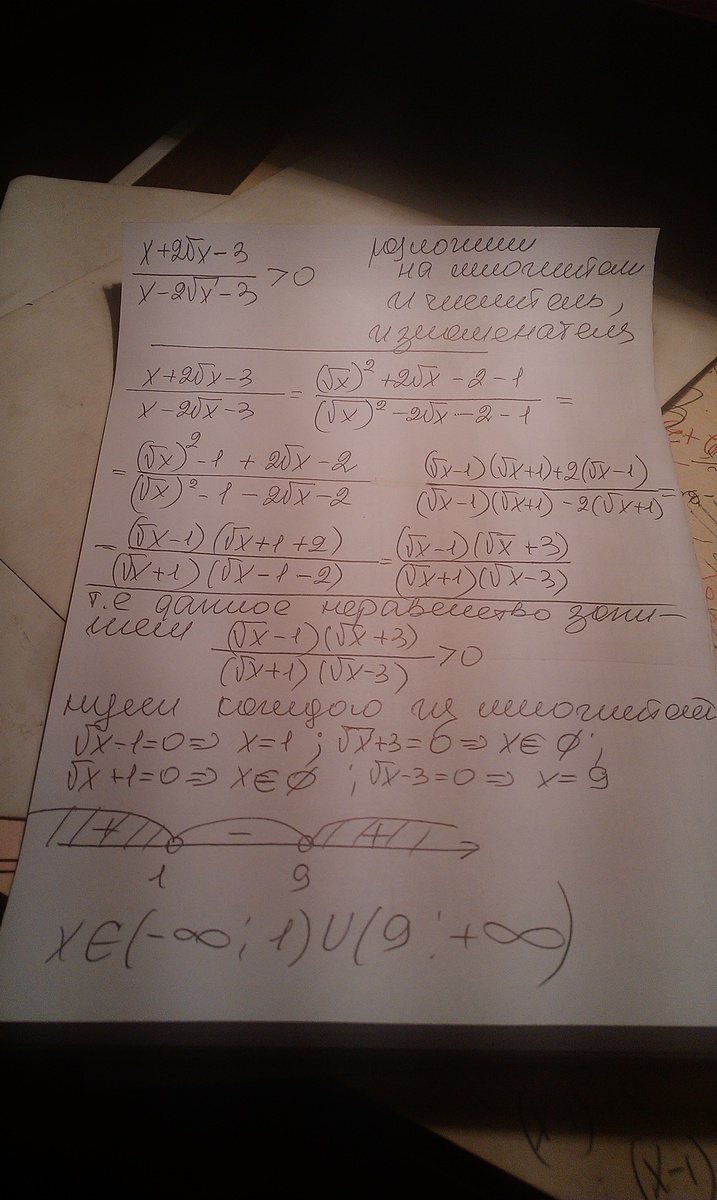 x+2√x-3 / x-2√x-3 >0
разложим
на множители
и числитель,
и знаменатель
x+2√x-3 / x-2√x-3 = (√x)²+2√x-2-1 / (√x)²-2√x-2-1 =
= (√x)²-1+2√x-2 / (√x)²-1-2√x-2 (√x-1)(√x+1)+2(√x-1) / (√x-1)(√x+1)-2(√x+1) =
= (√x-1)(√x+1+2) / (√x+1)(√x-1-2) = (√x-1)(√x+3) / (√x+1)(√x-3)
т.е данное неравенство запи-
шем (√x-1)(√x+3) / (√x+1)(√x-3) >0
нули каждого из
√x-1=0⇒ x=1 ; √x+3=0⇒ x∈ ∅ ;
√x+1=0⇒ x∈ ∅ ; √x-3=0⇒ x=9
+ - +
1 9
x∈(-∞; 1)∪(9; +∞)
(x-1)